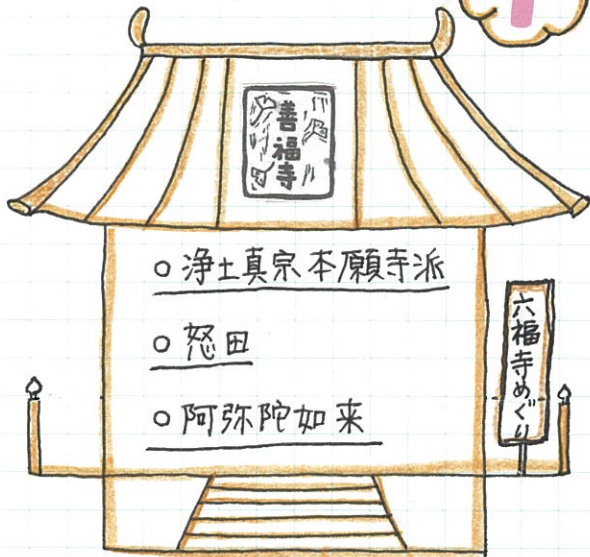 善福寺
○浄土真宗本願寺派
○怒田
○阿弥陀如来
六福寺めぐり